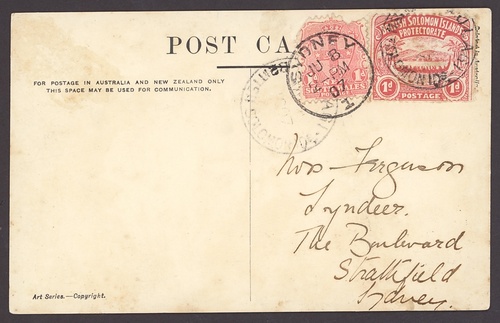 POST CA
FOR POSTAGE IN AUSTRALIA AND NEW ZEALAND ONLY
THIS SPACE MAY BE USED FOR COMMUNICATION.
SYDNEY
JU 8
PM
07
1d
WALES
BRITISH SOLOMON ISLANDS
PROTECTORATE
1d POSTAGE 1d
Ferguson
Lyndeer.
The Boulevard
Strathfield
Sydney.
Art Series.—Copyright.